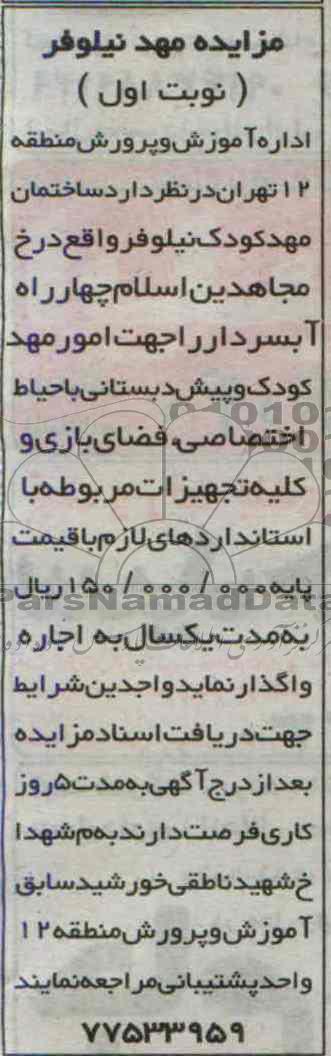 مزایده مهد نیلوفر
( نوبت اول )
اداره آموزش و پرورش منطقه
۱۲ تهران در نظر دارد ساختمان
مهد کودک نیلوفر واقع در خ
مجاهدین اسلام چهار راه
آبسردار را جهت امور مهد
کودک و پیش دبستانی با حیاط
اختصاصی، فضای بازی و
کلیه تجهیزات مربوطه با
استانداردهای لازم با قیمت
پایه ۱۵۰/۰۰۰/۰۰۰ ریال
به مدت یکسال به اجاره
واگذار نماید واجدین شرایط
جهت دریافت اسناد مزایده
بعد از درج آگهی به مدت ۵ روز
کاری فرصت دارند به م شهدا
خ شهید ناطقی خورشید سابق
آموزش و پرورش منطقه ۱۲
واحد پشتیبانی مراجعه نمایند
۷۷۵۳۳۹۵۹
ParsNamadData